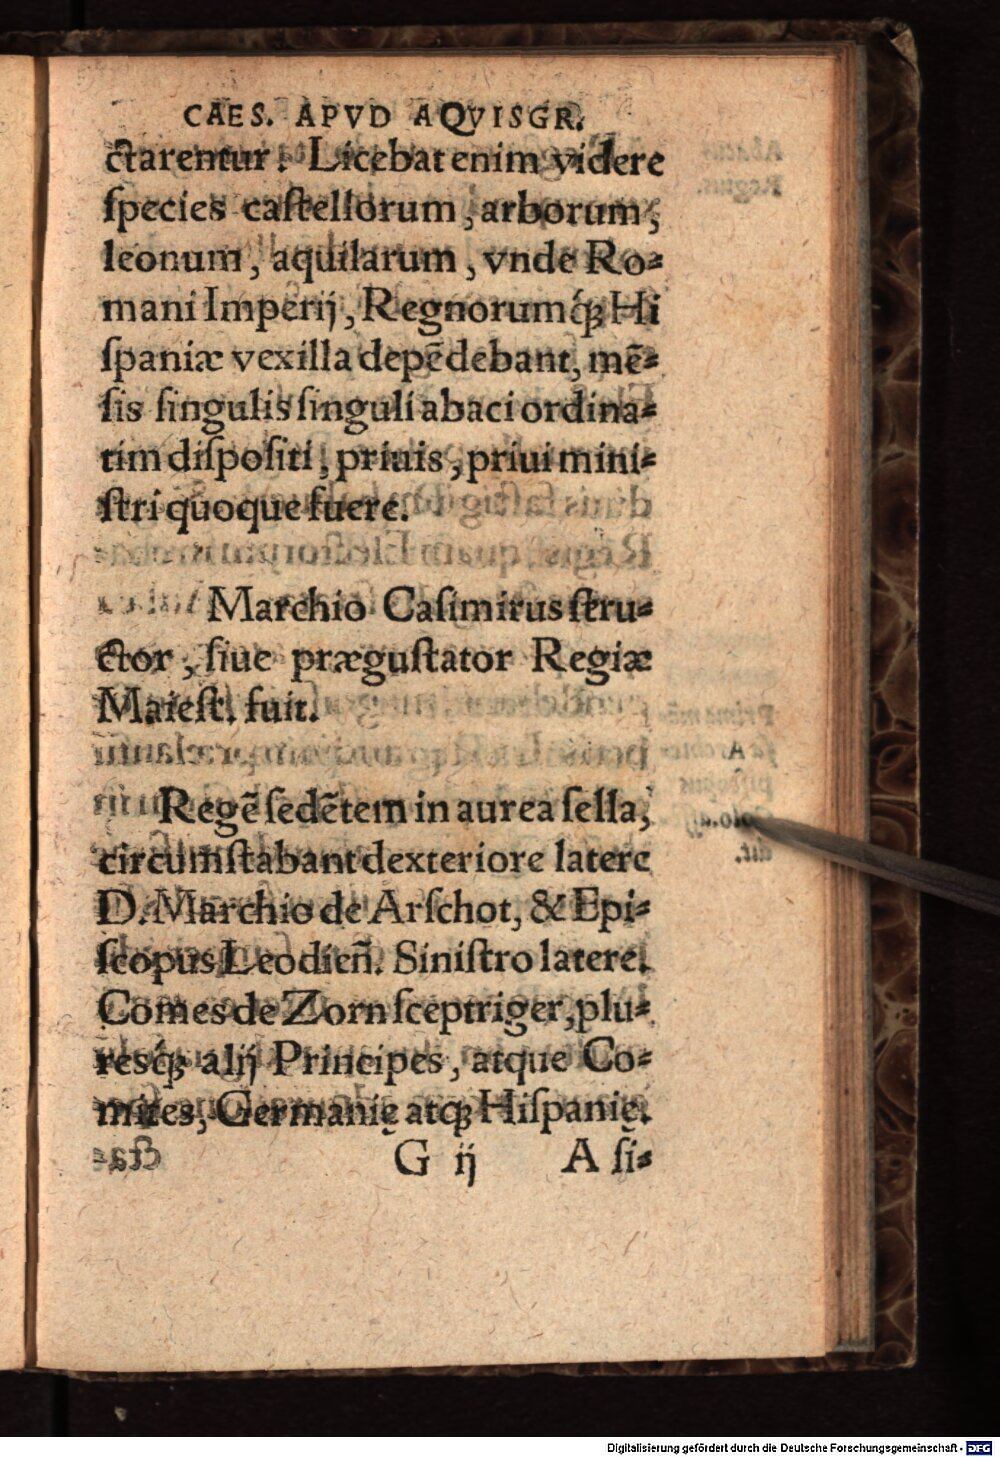 CAES. APVD AQVISGR.
ctarentur. Licebat enim videre
ſpecies caſtellorum, arborum,
leonum, aquilarum, vnde Ro-
mani Imperij, Regnorumq́ꝫ Hi
ſpaniæ vexilla depẽdebant, mẽ-
ſis ſingulis ſinguli abaci ordina-
tim diſpoſiti, priuis, priui mini-
ſtri quoque fuere.
Marchio Caſimirus ſtru-
ctor, ſiue præguſtator Regiæ
Maieſt. fuit.
Regẽ ſedẽtem in aurea ſella,
circumſtabant dexteriore latere
D. Marchio de Arſchot, & Epi-
ſcopus Leodien̄. Siniſtro latere.
Comes de Zorn ſceptriger, plu-
resq́ꝫ alij Principes, atque Co-
mites, Germanię atqꝫ Hiſpanię.
G ij A ſi-
Digitalisierung gefördert durch die Deutsche Forschungsgemeinschaft - DFG